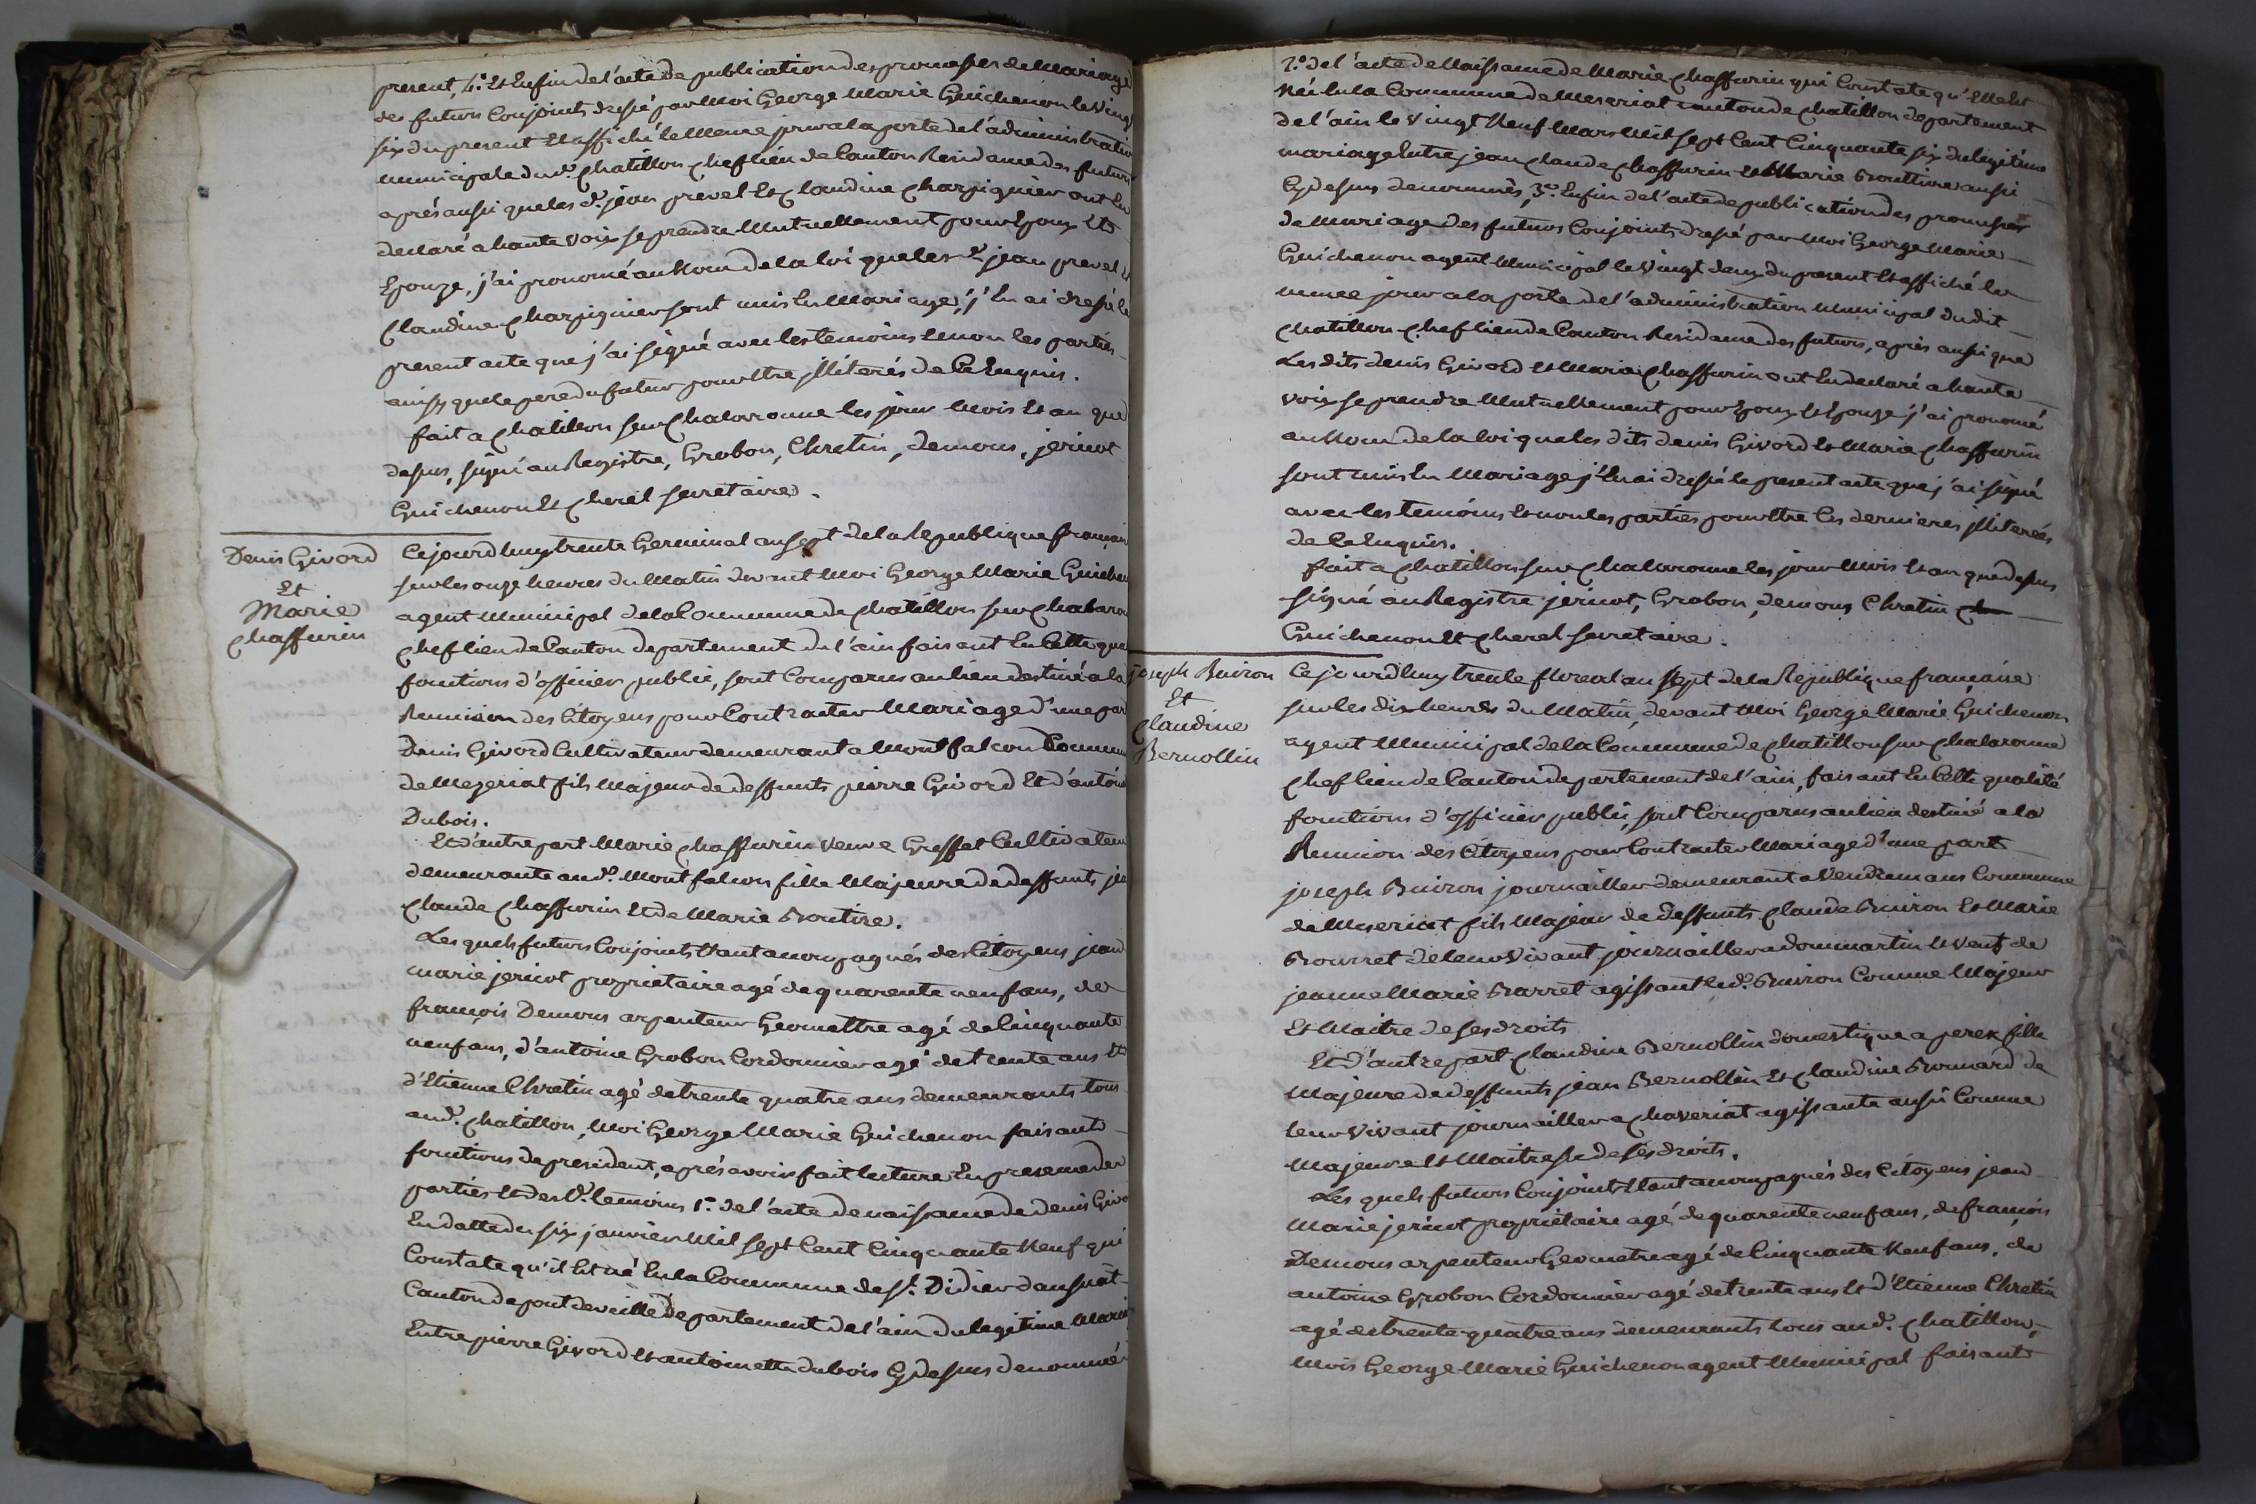 present, 4.° Et Enfin de l'acte de publication des promesses de Mariage
des futurs Conjoints dressé par Moi George Marie Guichenon le Vingt
six du present Et affiché le Meme jour a la porte de l'administratio
municipale dud.t Chatillon Chef lieu de Canton Residance des futurs
aprés aussi que les d.s jean prevel Et Claudine Charpignier ont Eu
declaré a haute voix se prendre Mutuellement pour Epoux Et
Epouze, j'ai prononcé au Nom de la loi que les d.s jean prevel et
Claudine Charpignier sont unis En Mariage, j'En ai dressé le
present acte que j'ai signé avec les temoins et non les parties
ainsy que le pere du futur pour Etre illiterés de Ce Enquis.
fait a Chatillon sur Chalaronne les jour Mois Et an que
dessus, signé au Registre, Grobon, Chretin, Demons, jericot
Guichenon Et Cherel secretaire.
Denis Givord
Et
Marie
Chaffurin
Cejourd'huy trente Germinal an sept de la Republique françai
sur les onze heures du Matin devant Moi George Marie Guichen
agent Municipal de la Commune de Chatillon sur Chalaron
Chef lieu de Canton departement de l'ain faisant En Cette qua
fonctions d'officier public, sont Comparus au lieu destiné a la
Reunion des Citoyens pour Contracter Mariage d'une par
Denis Givord Cultivateur demeurant a Montfalcon Commun
de Mezeriat fils Majeur de deffunts pierre Givord Et d'antoin
Dubois.
Et d'autre part Marie Chaffurin Veuve Greffet Cultivateur
demeurante aud.t Montfalcon fille Majeure de deffunts je
Claude Chaffurin Et de Marie Boutire.
Les quels futurs Conjoints Etant accompagnés des Citoyens jean
marie jericot proprietaire agé de quarente neuf ans, de
françois Demons arpenteur Geomettre agé de Cinquante
neuf ans, d'antoine Grobon Cordonnier agé de trente ans Et
d'Etienne Chretin agé de trente quatre ans demeurants tous
aud.t Chatillon, Moi George Marie Guichenon faisant
fonctions de president, aprés avoir fait lecture En presence des
parties Et des d.s temoins 1.° de l'acte de naissance de Denis Givo
En datte du six janvier Mil sept Cent Cinquante Neuf qui
Constate qu'il Est né En la Commune de S.t Didier daussiat
Canton de pont deveille Departement de l'ain du legitime Maria
Entre pierre Givord Et antoinette dubois Cy dessus denommés
2.° de l'acte de Naissance de Marie Chaffurin qui Constate qu'Elle Est
Née En la Commune de Meseriat canton de Chatillon departement
de l'ain le Vingt Neuf Mars Mil sept Cent Cinquante six du legitime
mariage Entre jean Claude Chaffurin Et Marie Bouttire aussi
Cy dessus denommés, 3.° Enfin de l'acte de publication des promesses
de Mariage des futurs Conjoints dressé par Moi George Marie
Guichenon agent Municipal le Vingt deux du present Et affiché le
meme jour a la porte de l'administration Municipal dudit
Chatillon Chef lieu de Canton Residance des futurs, aprés aussi que
Les dits denis Givord Et Marie Chaffurin ont Eu declaré a haute
voix se prendre Mutuellement pour Epoux Et Epouze j'ai prononcé
au Nom de la loi que les dits denis Givord Et Marie Chaffurin
sont unis En Mariage j'En ai dressé le present acte que j'ai signé
avec les temoins Et non les parties pour Etre Ces dernieres illiterées
de Ce Enquis.
fait a Chatillon sur Chalaronne les jour Mois Et an que dessus
signé au Registre jericot, Grobon, demons Chretin
Guichenon Et Cherel secretaire.
joseph Buiron
Et
Claudine
Bernollin
Cejourd'huy trente floreal an sept de la Republique française
sur les dix heures du Matin, devant Moi George Marie Guichenon
agent Municipal de la Commune de Chatillon sur Chalaronne
Chef lieu de Canton departement de l'ain, faisant En Cette qualité
fonctions d'officier public, sont Comparus au lieu destiné a la
Reunion des Citoyens pour Contracter Mariage d'une part
joseph Buiron journaillier demeurant a Vendramans Commune
de Meseriat fils Majeur de deffunts Claude Buiron Et Marie
Bourret de leur Vivant journaillier a dommartin Et veuf de
jeanne Marie Barret agissant led.t Buiron Comme Majeur
Et Maitre de ses droits
Et d'autre part Claudine Bernollin domestique a perex fille
Majeure de deffunts jean Bernollin Et Claudine Bornard de
leur Vivant journaillier a Chaveriat agissante aussi Comme
Majeure Et Maitresse de ses droits.
Les quels futurs Conjoints Etant accompagnés des Citoyens jean
Marie jericot proprietaire agé de quarente neuf ans, de françois
Demons arpenteur Geometre agé de Cinquante Neuf ans, de
antoine Grobon Cordonnier agé de trente ans Et d'Etienne Chretin
agé de trente quatre ans demeurants tous aud.t Chatillon,
Moi George Marie Guichenon agent Municipal faisant